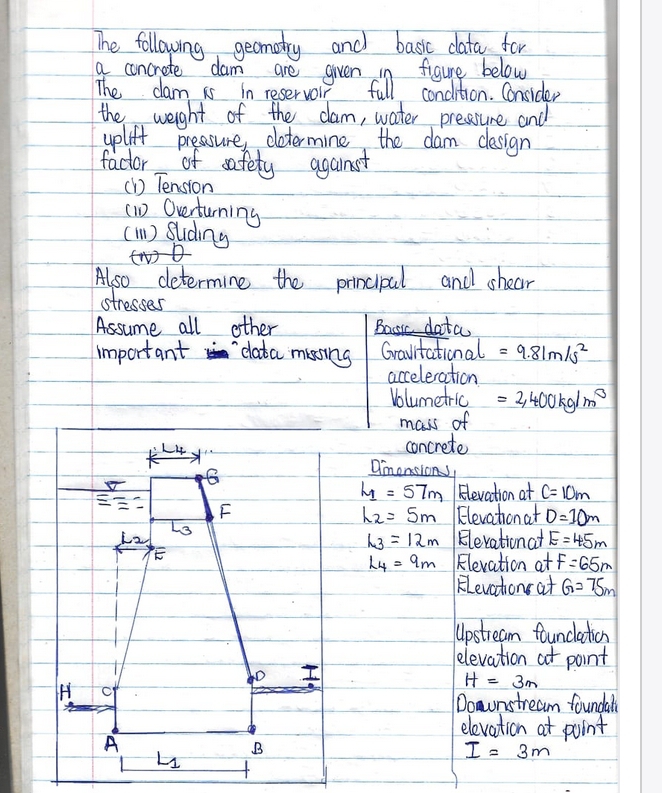 The following geometry and basic data for
a concrete dam are given in figure below
The dam is in reservoir full condition. Consider
the weight of the dam, water pressure and
uplift pressure, determine the dam design
factor of safety against
(i) Tension
(ii) Overturning
(iii) Sliding
(iv) D
Also determine the principal and shear
stresses
Assume all other
important data missing
Basic data
Gravitational = 9.81m/s²
acceleration
Volumetric = 2,400kg/m³
mass of
concrete
Dimensions
L1 = 57m
L2 = 5m
L3 = 12m
L4 = 9m
Elevation at C = 10m
Elevation at D = 10m
Elevation at E = 45m
Elevation at F = 65m
Elevations at G = 75m
Upstream foundation
elevation at point
H = 3m
Downstream foundati
elevation at point
I = 3m
L4
G
F
L3
L2
E
D
I
H
C
A
B
L1